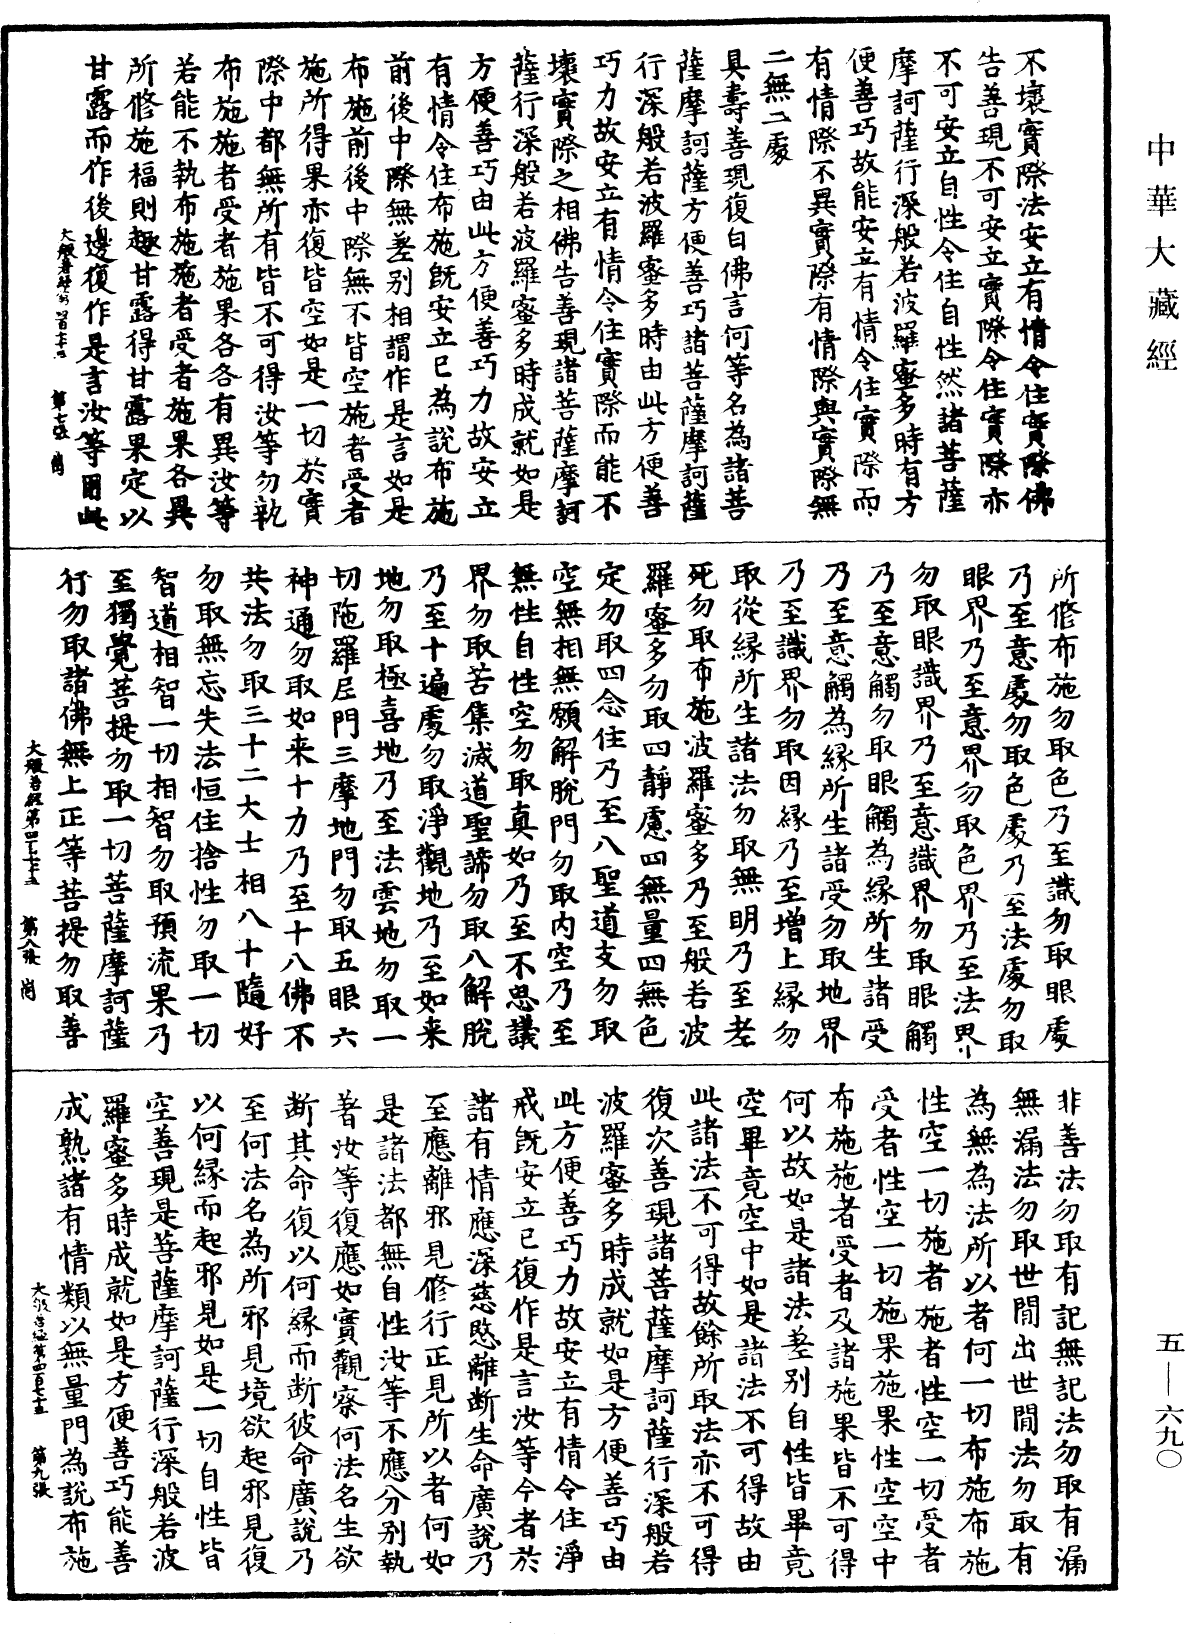 中華大藏經
不壞實際法安立有情令住實際佛
告善現不可安立實際令住實際亦
不可安立自性令住自性然諸菩薩
摩訶薩行深般若波羅蜜多時有方
便善巧故能安立有情令住實際而
有情際不異實際有情際與實際無
二無二處
具壽善現復白佛言何等名為諸菩
薩摩訶薩方便善巧諸菩薩摩訶薩
行深般若波羅蜜多時由此方便善
巧力故安立有情令住實際而能不
壞實際之相佛告善現諸菩薩摩訶
薩行深般若波羅蜜多時成就如是
方便善巧由此方便善巧力故安立
有情令住布施既安立已為說布施
前後中際無差別相謂作是言如是
布施前後中際無不皆空施者受者
施所得果亦復皆空如是一切於實
際中都無所有皆不可得汝等勿執
布施施者受者施果各各有異汝等
若能不執布施施者受者施果各異
所修施福則趣甘露得甘露果定以
甘露而作後邊復作是言汝等用此
第七張
所修布施勿取色乃至識勿取眼處
乃至意處勿取色處乃至法處勿取
眼界乃至意界勿取色界乃至法界
勿取眼識界乃至意識界勿取眼觸
乃至意觸勿取眼觸為緣所生諸受
乃至意觸為緣所生諸受勿取地界
乃至識界勿取因緣乃至增上緣勿
取從緣所生諸法勿取無明乃至老
死勿取布施波羅蜜多乃至般若波
羅蜜多勿取四靜慮四無量四無色
定勿取四念住乃至八聖道支勿取
空無相無願解脫門勿取內空乃至
無性自性空勿取真如乃至不思議
界勿取苦集滅道聖諦勿取八解脫
乃至十遍處勿取淨觀地乃至如来
地勿取極喜地乃至法雲地勿取一
切陁羅尼門三摩地門勿取五眼六
神通勿取如来十力乃至十八佛不
共法勿取三十二大士相八十隨好
勿取無忘失法恒住捨性勿取一切
智道相智一切相智勿取預流果乃
至獨覺菩提勿取一切菩薩摩訶薩
行勿取諸佛無上正等菩提勿取善
大般若經第四百七十五 第八張
非善法勿取有記無記法勿取有漏
無漏法勿取世間出世間法勿取有
為無為法所以者何一切布施布施
性空一切施者施者性空一切受者
受者性空一切施果施果性空空中
布施施者受者及諸施果皆不可得
何以故如是諸法差別自性皆畢竟
空畢竟空中如是諸法不可得故由
此諸法不可得故餘所取法亦不可得
復次善現諸菩薩摩訶薩行深般若
波羅蜜多時成就如是方便善巧由
此方便善巧力故安立有情令住淨
戒既安立已復作是言汝等今者於
諸有情應深慈愍離斷生命廣說乃
至應離邪見修行正見所以者何如
是諸法都無自性汝等不應分別執
著汝等復應如實觀察何法名生欲
斷其命復以何緣而斷彼命廣說乃
至何法名為所邪見境欲起邪見復
以何緣而起邪見如是一切自性皆
空善現是菩薩摩訶薩行深般若波
羅蜜多時成就如是方便善巧能善
成熟諸有情類以無量門為說布施
大般若經第四百七十五 第九張
五—六九〇